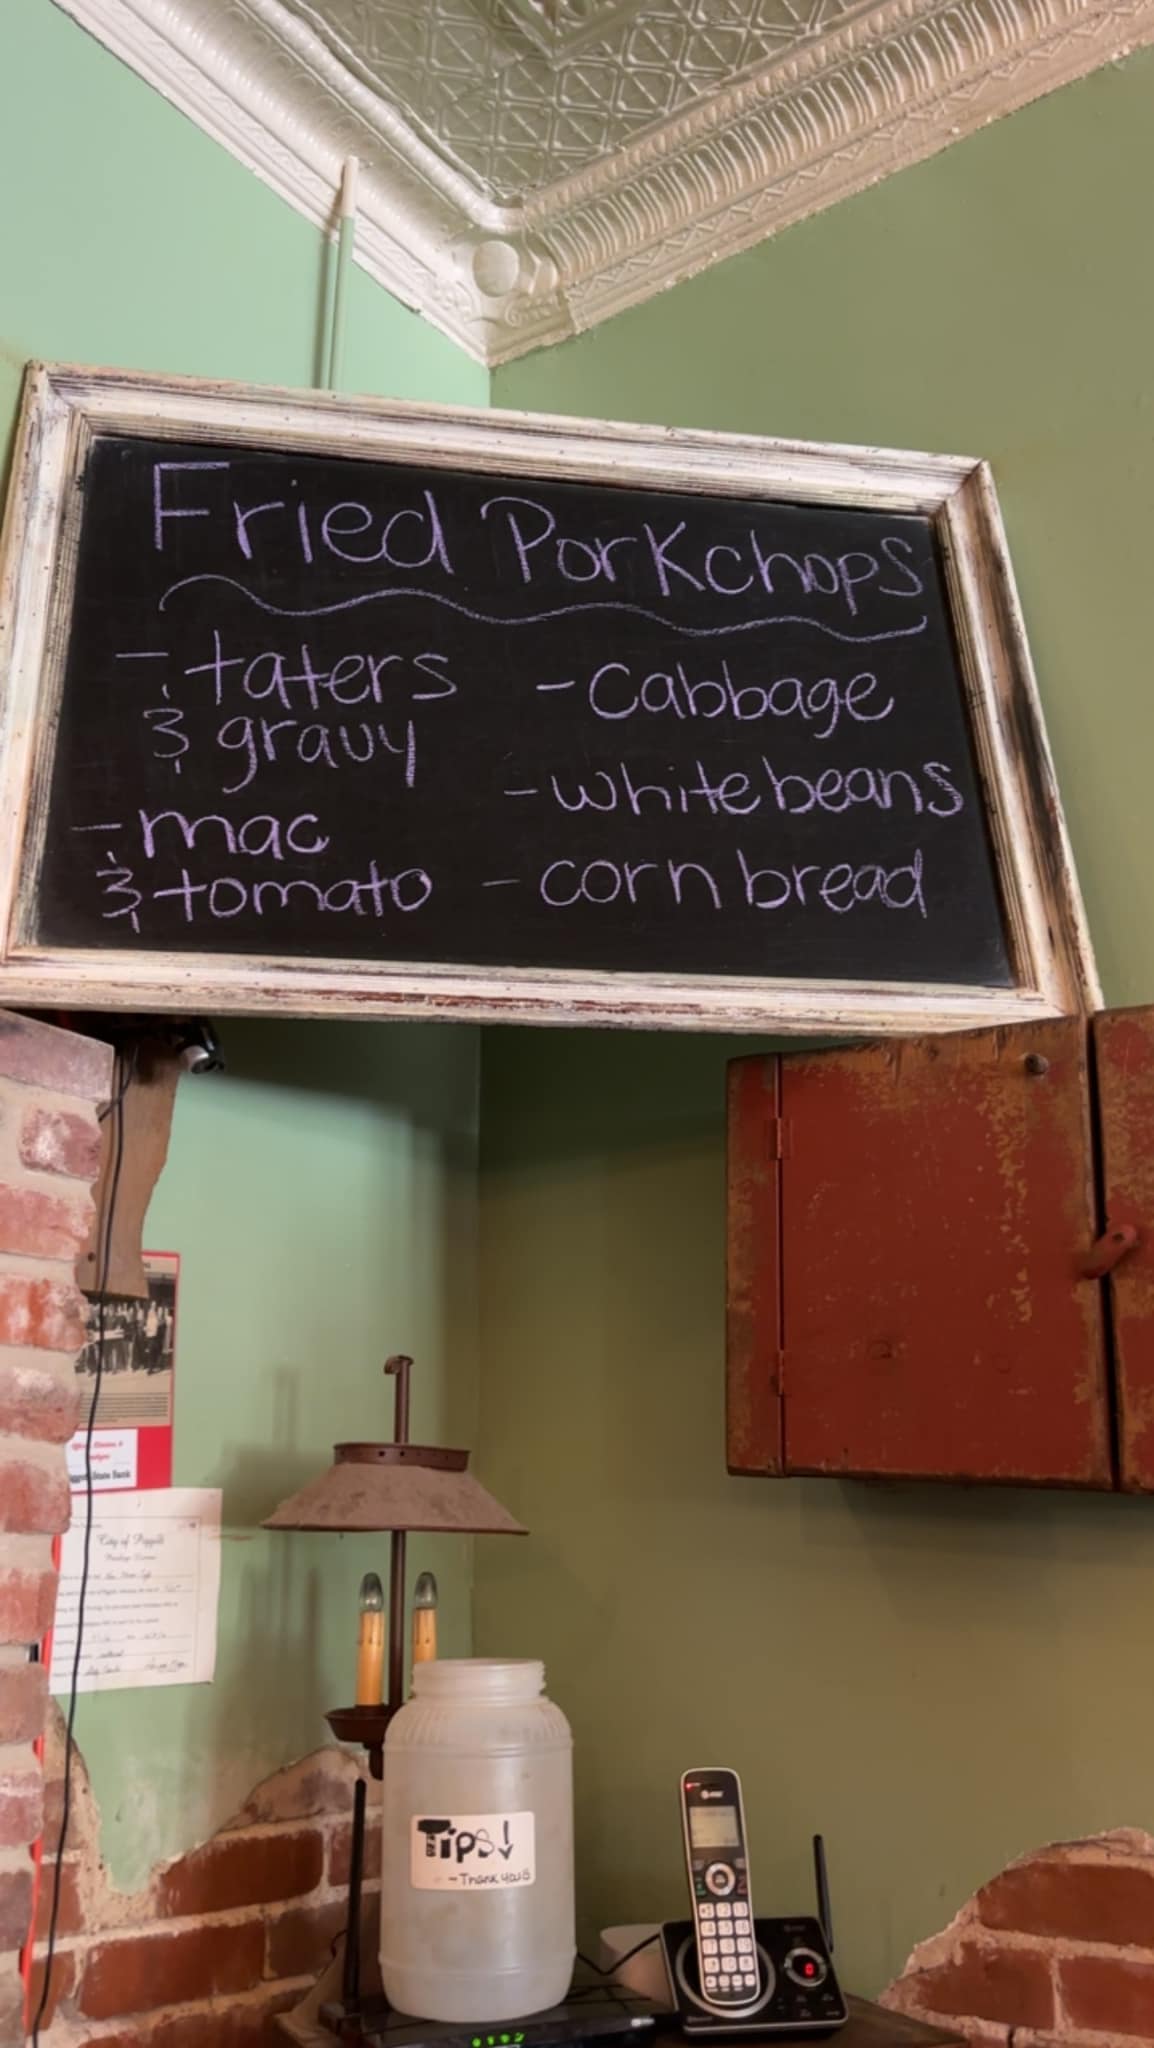 Fried Porkchops
- taters
& gravy
- mac
& tomato
- Cabbage
- white beans
- corn bread
State Bank
City of Piggott
Tips!
- Thank you